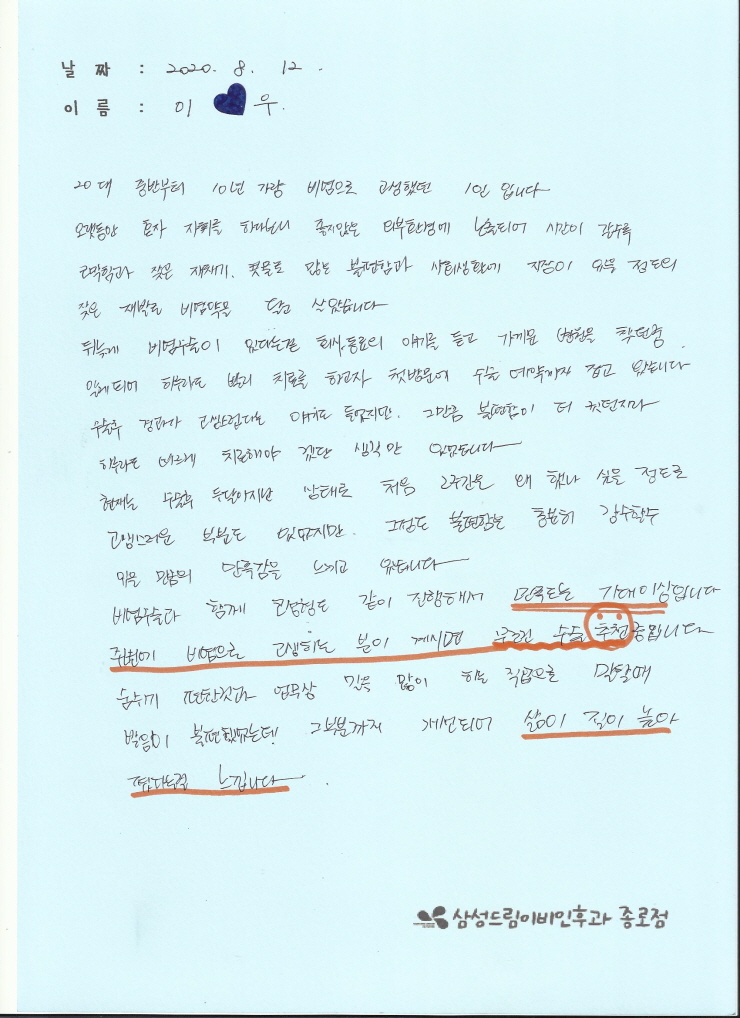 날 짜 : 2020. 8. 12.
이 름 : 이 우.
20대 중반부터 10년 가량 비염으로 고생했던 1인 입니다
오랫동안 혼자 자취를 하다보니 좋지않은 외부환경에 노출되어 시간이 갈수록
코막힘과 잦은 재채기, 콧물로 많은 불편함과 사회생활에 지장이 있을 정도의
잦은 재발로 비염약을 달고 살았습니다
뒤늦게 비염수술이 있다는걸 회사동료의 얘기를 듣고 가까운 병원을 찾던중
알게되어 하루라도 빨리 치료를 하고자 첫방문에 수술 예약까지 잡고 왔습니다
수술후 경과가 고통스럽다는 얘기도 들었지만, 그만큼 불편함이 더 컸던지라
하루라도 빠르게 치료해야 겠단 생각만 있었습니다
현재는 수술후 두달이지난 상태로 처음 2주간은 왜 했나 싶을 정도로
고통스러운 부분도 있었지만, 그정도 불편함은 충분히 감수할수
있을 만큼의 만족감을 느끼고 있습니다
비염수술과 함께 코성형도 같이 진행해서 만족도는 기대이상입니다
주위에 비염으로 고생하는 분이 계시면 무조건 수술 추천중입니다
숨쉬기 편한것과 업무상 말을 많이 하는 직업으로 말할때
발음이 불편했었는데! 그부분까지 개선되어 삶이 질이 높아
졌다는걸 느낍니다.
삼성드림이비인후과 종로점